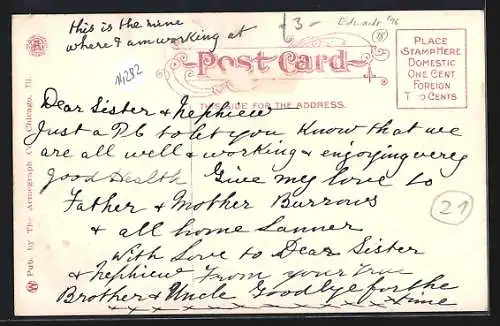 this is the mine
where I am working at
3-
Edwards
18
14282
Post Card
THIS SIDE FOR THE ADDRESS.
PLACE
STAMP HERE
DOMESTIC
ONE CENT
FOREIGN
TWO CENTS
Dear Sister & Nephiew
Just a PC to let you Know that we
are all well & working & enjoying verey
good Health Give my love to
Father & Mother Burrows
& all home
With Love to Dear Sister
& nephiew From your True
Brother & Uncle Goodbye for the
time
x x x x x x x x x x x
21
Pub. by The Acmegraph Co. Chicago, Ill.